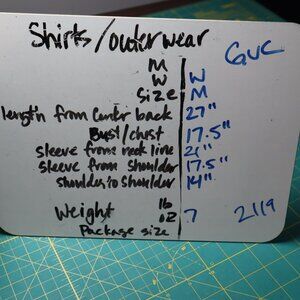 Shirts/outerwear
GUC
M
W W
Size M
length from center back 27"
Bust/chest 17.5"
sleeve from neck line 21"
sleeve from shoulder 17.5"
shoulder to shoulder 14"
lb
Weight oz 7 2119
Package size